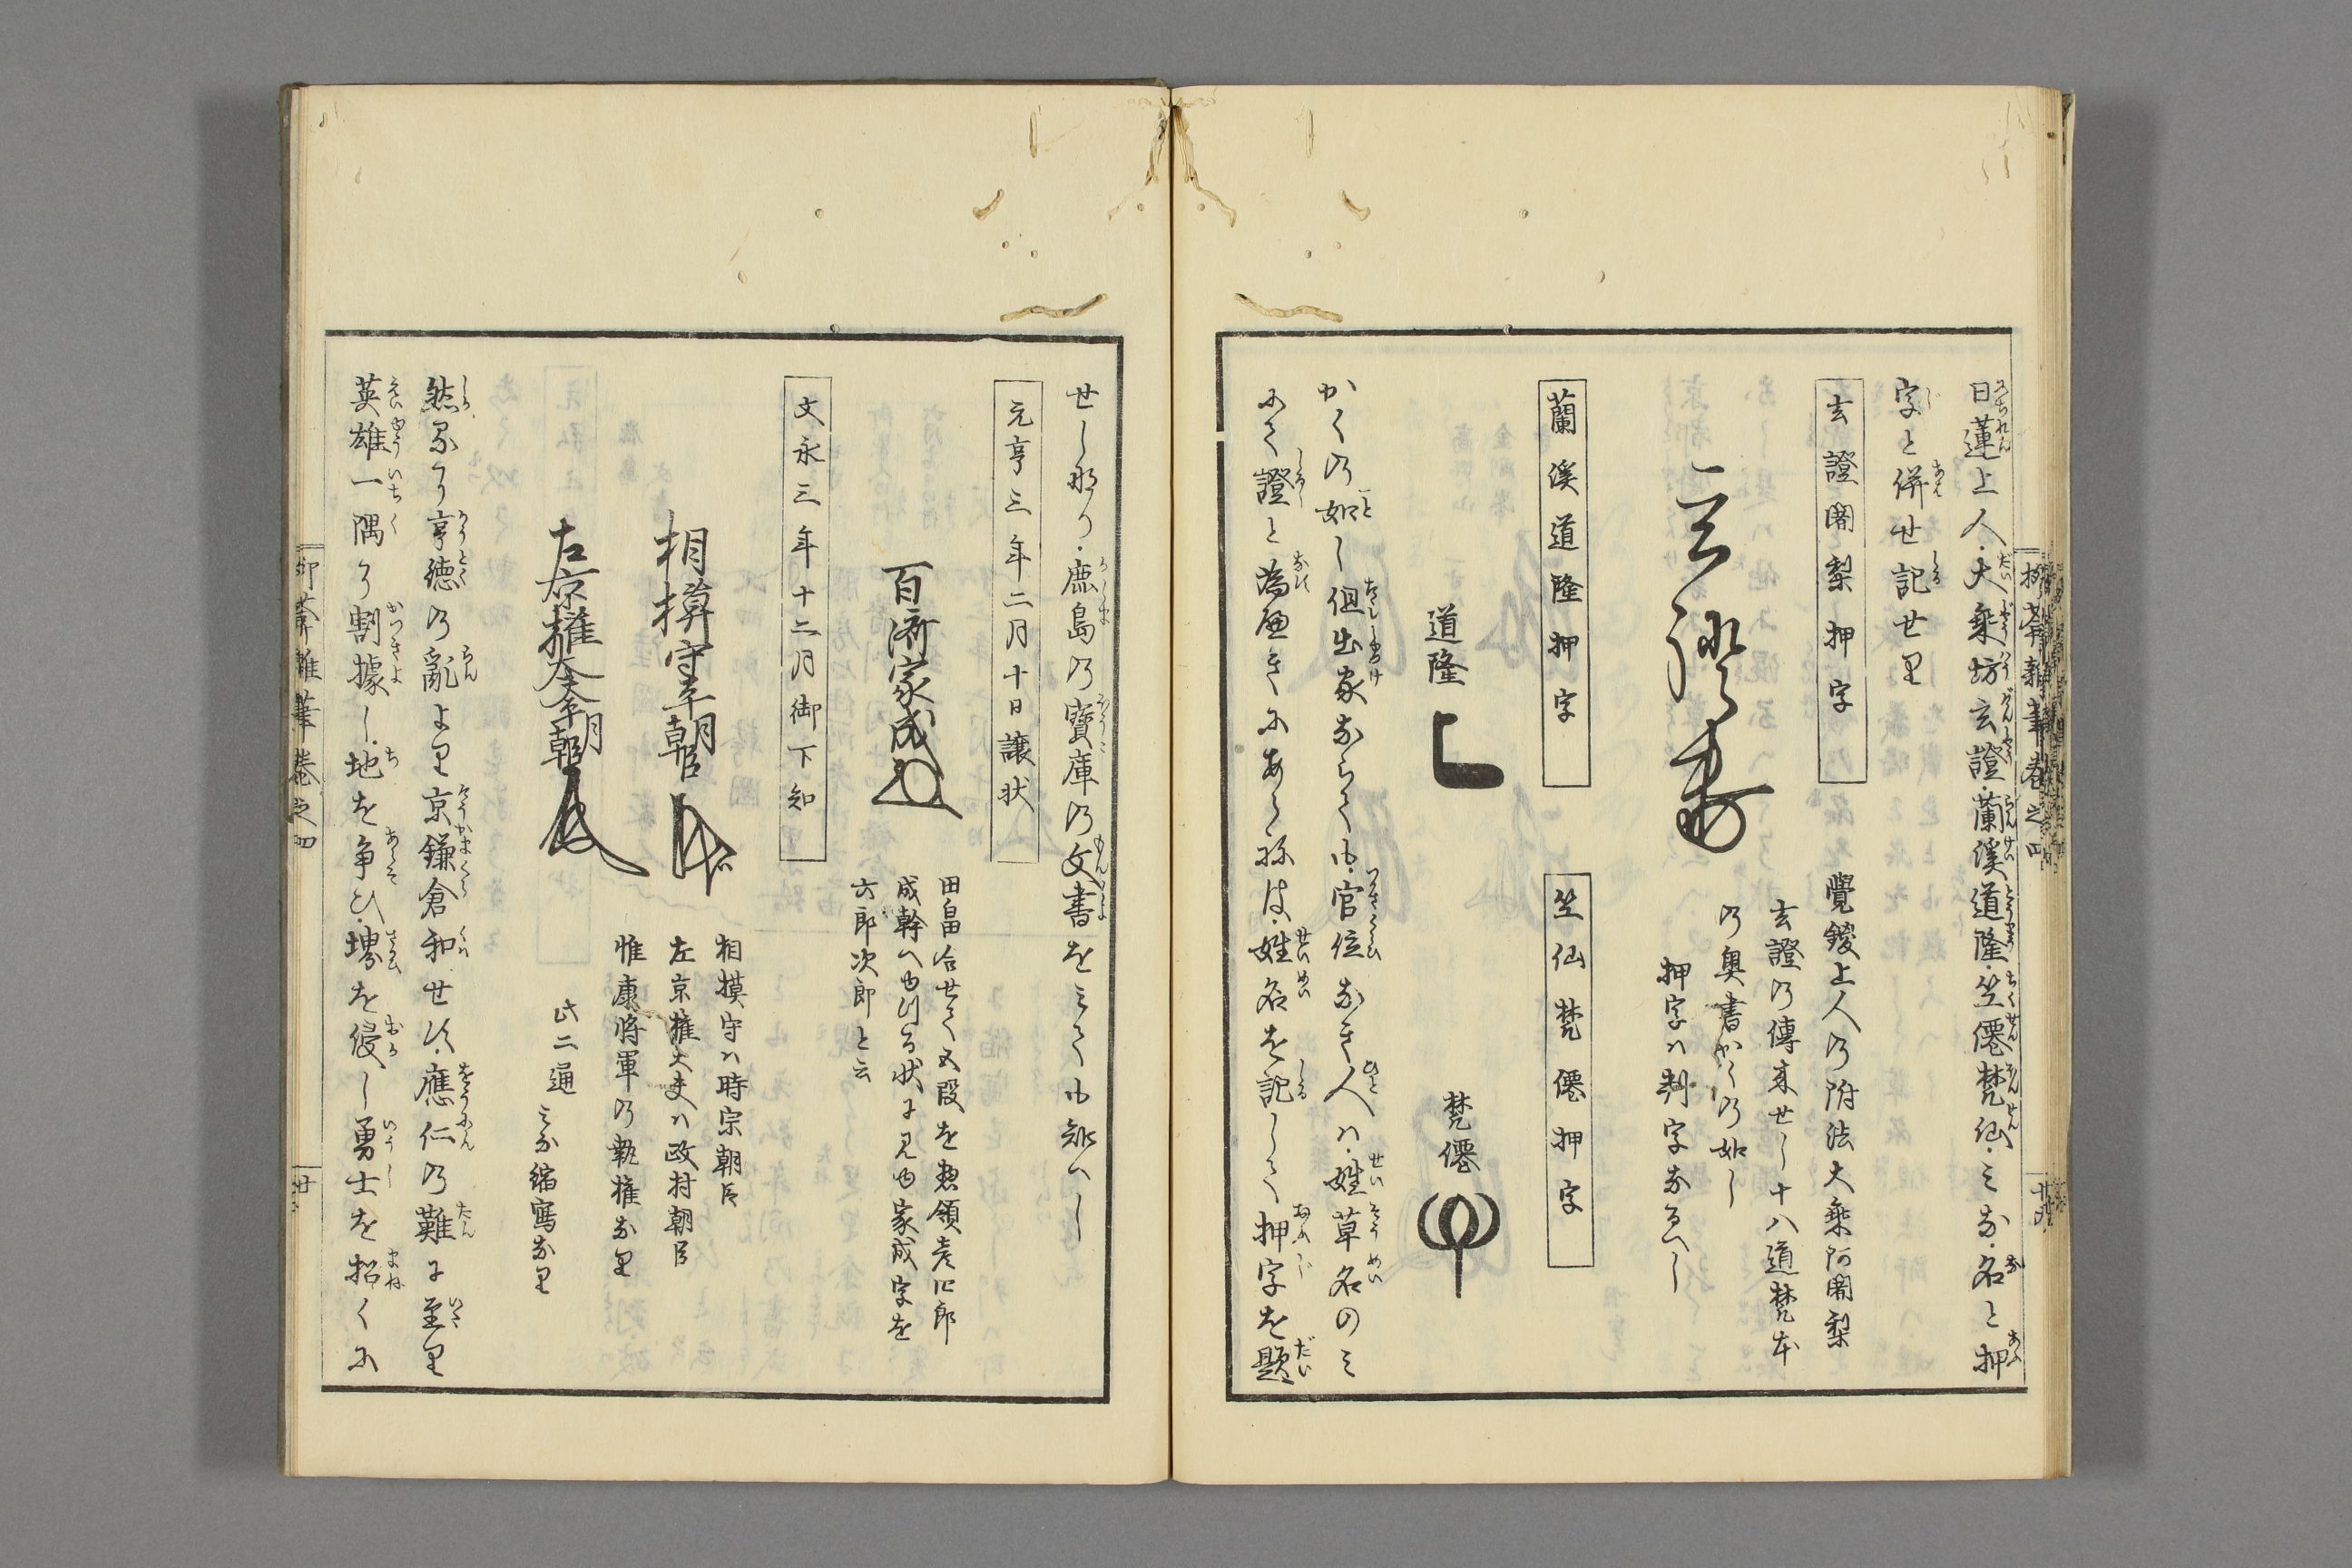 日蓮上人・大乗坊玄證・蘭溪道隆・竺僊梵仙・ミな・名と押
字と併せ記せり
玄證闍梨押字
玄證
覺鑁上人の附法大乗阿闍梨
玄證の傳来せし十八道梵本
の奥書かくの如し
押字ハ判字なるへし
蘭溪道隆押字
道隆
竺仙梵僊押字
梵僊
かくの如し但出家ならても・官位なき人ハ・姓草名のミ
にて證と為へきにあらねは・姓名を記しして押字を題
せしなり・鹿島の寶庫の文書をミても知へし
元亨三年二月十日讓状
百濟家成
田畠合せて五段を惣領彦四郎
成幹へゆつる状に見ゆ家成字を
六郎次郎と云
文永三年十二月御下知
相摸守平朝臣
左京權大夫平朝臣
相摸守ハ時宗朝臣
左京權大夫ハ政村朝臣
惟康將軍の執權なり
此二通
ミな縮寫なり
然るに亨徳の亂より京鎌倉和せす・應仁の難に至り
英雄一隅に割據し・地を争ひ・堺を侵し勇士を招くに
柳菴雜筆卷之四
廿